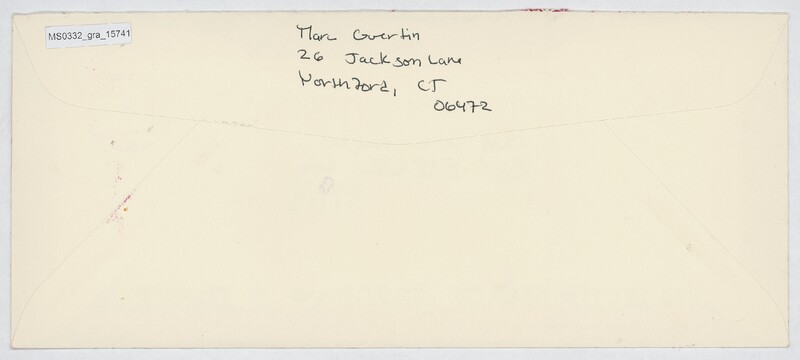 MS0332_gra_15741
Marc Guertin
26 Jackson Lane
Northford, CT
06472